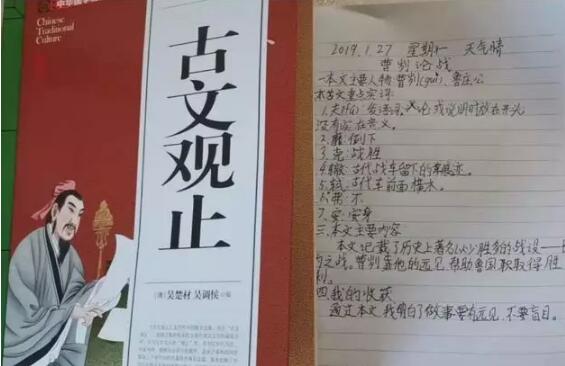 中华国学
Chinese
Traditional
Culture
古文观止
[清]吴楚材 吴调侯 编
2019.1.27 星期一 天气晴
曹刿论战
一本文主要人物 曹刿(gui)、鲁庄公
本古文重点实词:
1.夫(fú) 发语词,议论或说明时放在开头
没有实在意义。
2.靡:倒下
3.克:战胜
4.辙:古代战车留下的车痕迹。
5.轼:古代车前面横木。
6.弗:不
7.安:安身
三.本文主要内容
本文记载了历史上著名以少胜多的战役——
勺之战。曹刿靠他的远见,帮助鲁国取得胜
利。
四.我的收获
通过本文我明白了做事要有远见,不要盲目。